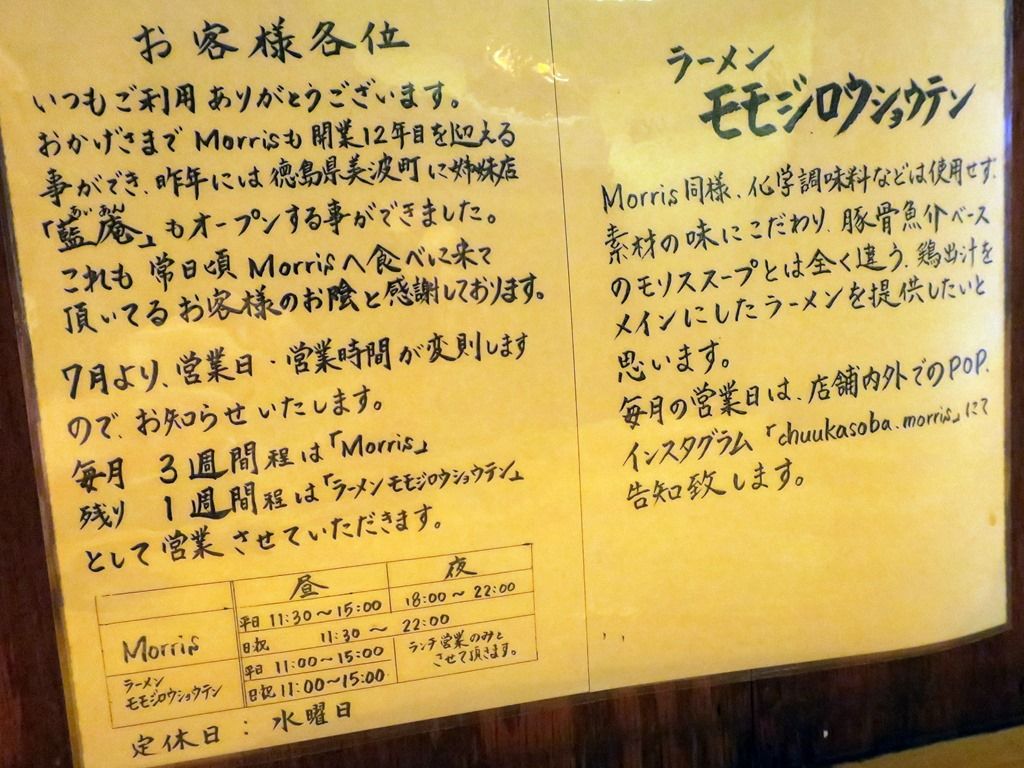 お客様各位
いつもご利用ありがとうございます。
おかげさまでMorrisも開業12年目を迎える
事ができ、昨年には徳島県美波町に姉妹店
あいおん
「藍庵」もオープンする事ができました。
これも常日頃Morrisへ食べに来て
頂いてるお客様のお陰と感謝しております。
7月より、営業日・営業時間が変則します
ので、お知らせいたします。
毎月 3週間程は「Morris」
残り 1週間程は「ラーメンモモジロウショウテン」
として営業させていただきます。
昼 夜
Morris 平日 11:30~15:00 18:00~22:00
日祝 11:30~22:00
ラーメン
モモジロウショウテン
平日 11:00~15:00
日祝 11:00~15:00
ランチ営業のみと
させて頂きます。
定休日:水曜日
ラーメン
モモジロウショウテン
Morris同様、化学調味料などは使用せず、
素材の味にこだわり、豚骨魚介ベース
のモリススープとは全く違う、鶏出汁を
メインにしたラーメンを提供したいと
思います。
毎月の営業日は、店舗内外でのPOP、
インスタグラム「chuukasoba.morris」にて
告知致します。